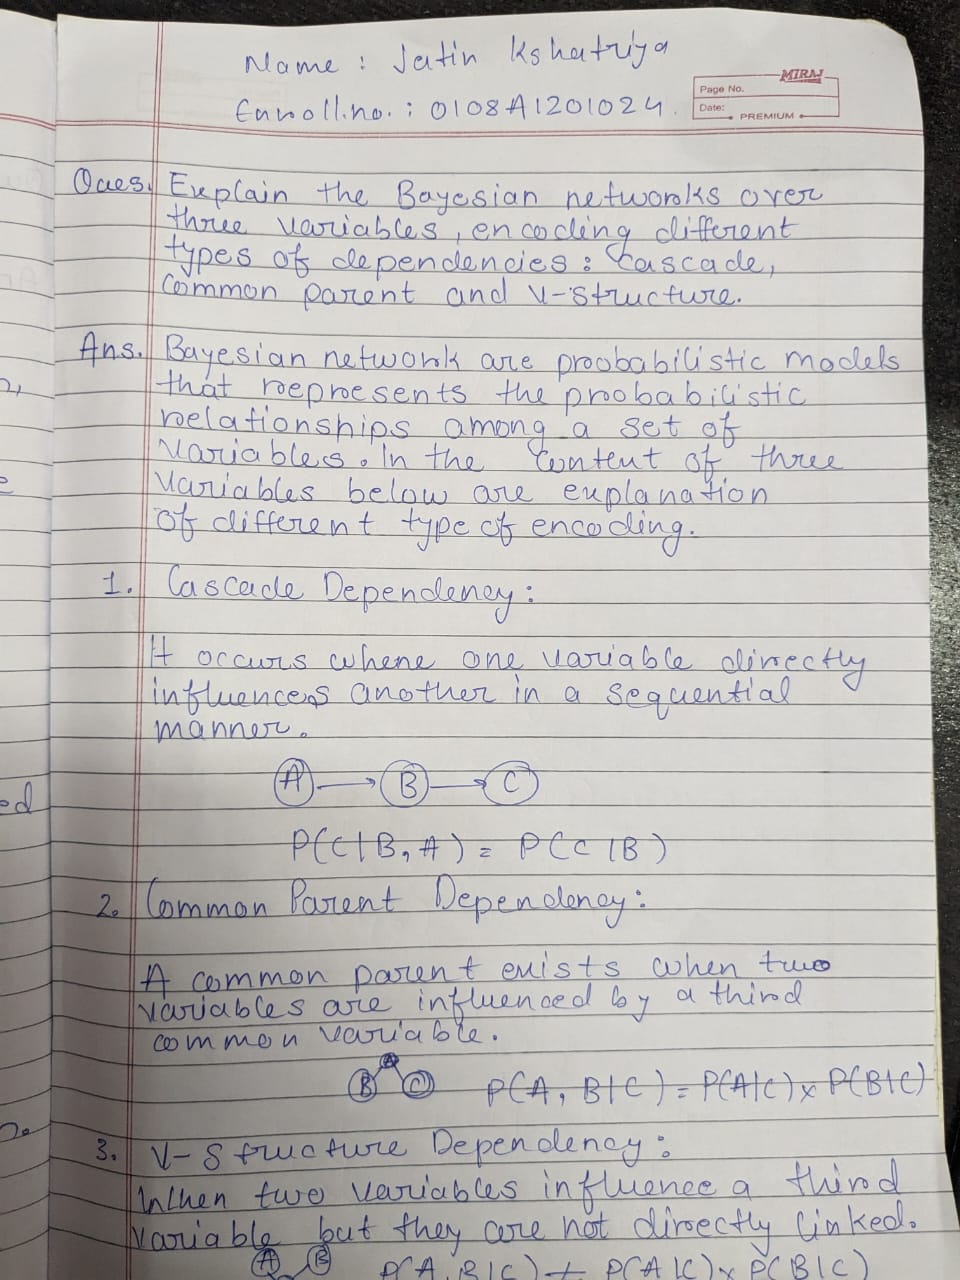 Name : Jatin Kshatriya
Enroll.no. : 0108AI201024
MIRAJ
Page No.
Date:
PREMIUM
Ques. Explain the Bayesian networks over
three variables, encoding different
types of dependencies : Cascade,
Common parent and V-structure.
Ans. Bayesian network are probabilistic models
that represents the probabilistic
relationships among a set of
variables. In the context of three
variables below are explanation
of different type of encoding.
1. Cascade Dependency :
It occurs where one variable directly
influences another in a sequential
manner.
A B C
P(C|B, A) = P(C|B)
2. Common Parent Dependency :
A common parent exists when two
variables are influenced by a third
common variable.
A
B C P(A, B|C) = P(A|C) x P(B|C)
3. V-Structure Dependency :
When two variables influence a third
variable but they are not directly linked.
A B P(A, B|C) ≠ P(A|C) x P(B|C)
ed